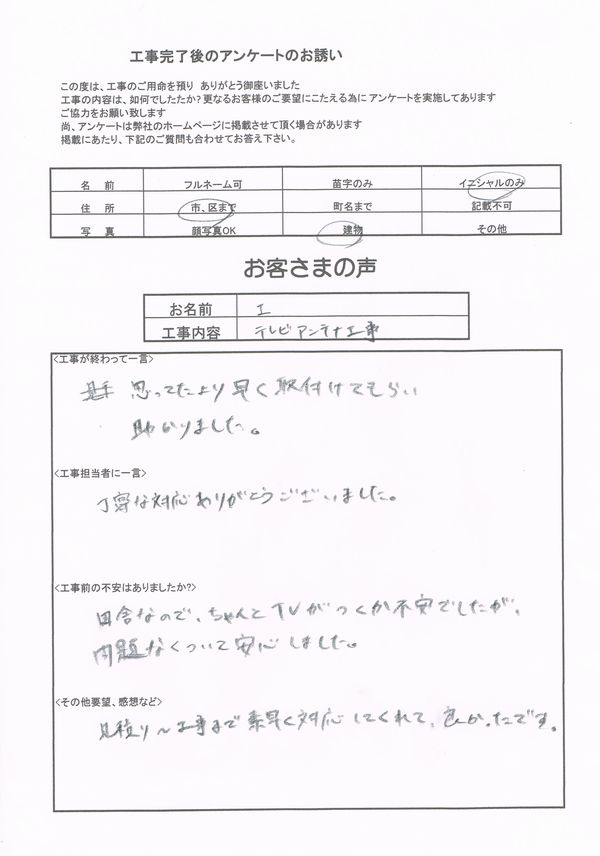 工事完了後のアンケートのお誘い
この度は、工事のご用命を預り ありがとう御座いました
工事の内容は、如何でしたたか？更なるお客様のご要望にこたえる為に アンケートを実施してあります
ご協力をお願い致します
尚、アンケートは弊社のホームページに掲載させて頂く場合があります
掲載にあたり、下記のご質問も合わせてお答え下さい。
名 前 フルネーム可 苗字のみ イニシャルのみ
住 所 市、区まで 町名まで 記載不可
写 真 顔写真OK 建物 その他
お客さまの声
お名前 I
工事内容 テレビアンテナ工事
<工事が終わって一言>
思ってたより早く取付けてもらい
助かりました。
<工事担当者に一言>
丁寧な対応ありがとうございました。
<工事前の不安はありましたか?>
田舎なので、ちゃんとTVがつくか不安でしたが、
問題なくついて安心しました。
<その他要望、感想など>
見積り〜工事まで素早く対応してくれて、良かったです。